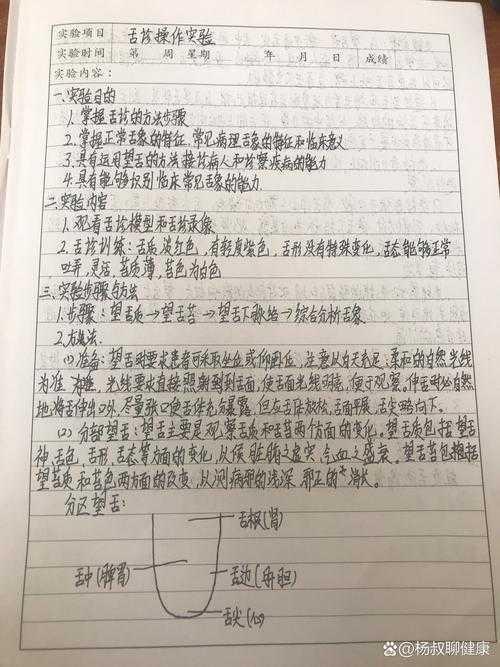 实验项目 舌诊操作实验
实验时间 第 周 星期 年 月 日 成绩
实验内容：
一、实验目的
1. 掌握舌诊的方法步骤
2. 掌握正常舌象的特征，常见病理舌象的特征和临床意义
3. 具有运用望舌的方法接诊病人和诊察疾病的能力
4. 具有能够识别临床常见舌象的能力.
二、实验内容
1. 观看舌诊模型和舌诊录像
2. 舌诊训练：舌质淡红色，有轻度紫色，舌形没有特殊变化，舌态能够正常
吐弄，灵活，苔质薄，苔色为白色
三、实验步骤与方法
1. 步骤：望舌质→望舌苔→望舌下脉络→综合分析舌象
2. 方法.
(1) 准备：望舌时要求患者可采取坐位或仰卧位，注意以白天充足、柔和的自然光线
为准 光线要求直接照射到舌面，使舌面光线明亮，便于观察。伸舌时必自然
地将舌伸出口外，尽量张口使舌体充分暴露，但应舌体放松，舌面平展，舌尖略向下。
(2) 分部望舌：望舌主要是观察舌质和舌苔两方面的变化。望舌质包括望舌
神、舌色，舌形，舌态等方面的变化，以候脏腑之虚实，气血之盛衰。望舌苔包括
望苔质和苔色两方面的改变，以测病邪的浅深，邪正的消长。
分区望舌：
舌根(肾)
舌中(脾胃)
舌边(肝胆)
舌尖(心)
@杨叔聊健康